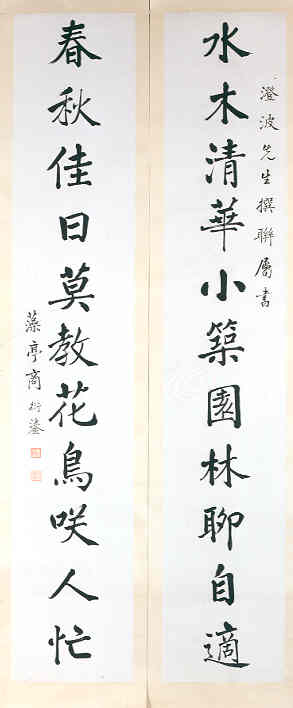 澄波先生撰聯屬書
水木清華小築園林聊自適
春秋佳日莫教花鳥咲人忙
藻亭商衍鎏